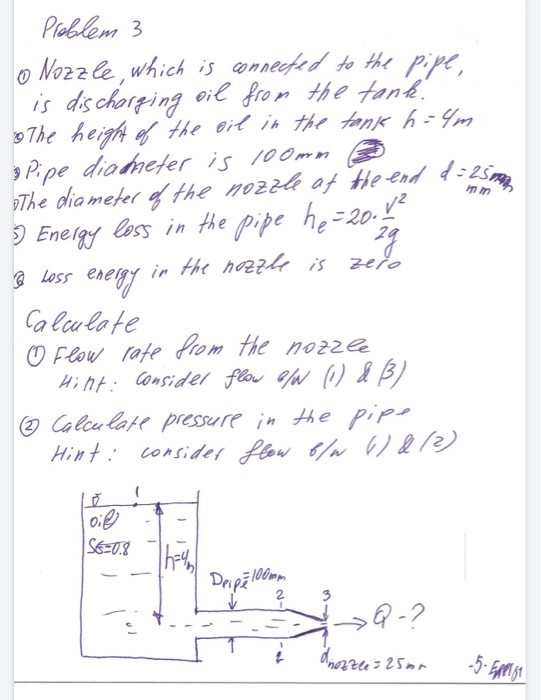 Problem 3
① Nozzle, which is connected to the pipe,
is discharging oil from the tank.
The height of the oil in the tank h = 4m
Pipe diameter is 100mm
The diameter of the nozzle at the end d = 25
mm
5) Energy loss in the pipe he = 20 · V²/2g
Loss energy in the nozzle is zero
Calculate
① Flow rate from the nozzle
Hint: Consider flow b/w (1) & (3)
② Calculate pressure in the pipe
Hint: consider flow b/w (1) & (2)
1
oil
SG=0.8
h=4m
Dpipe=100mm
2
3
Q-?
2
dnozzle = 25mm
-5-